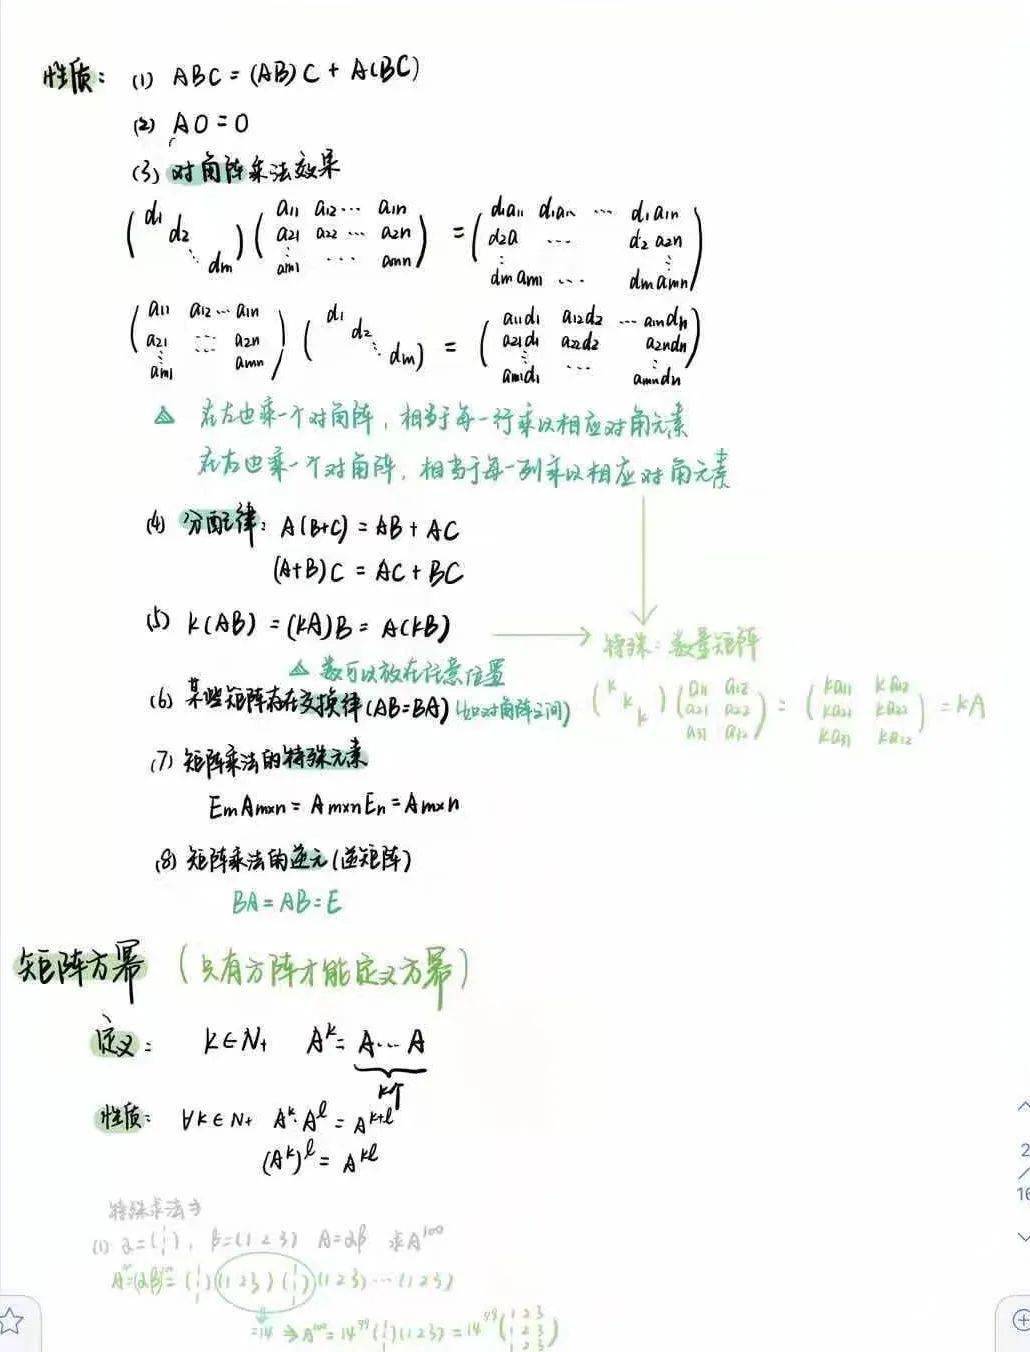 性质: (1) ABC = (AB)C + A(BC)
(2) AO = O
(3) 对角阵乘法效果
(d1 d2 ⋱ dm) (a11 a12 ⋯ a1n a21 a22 ⋯ a2n ⋮ am1 ⋯ amn) = (d1a11 d1a1n ⋯ d1a1n d2a ⋯ d2a2n ⋮ ⋮ dmam1 ⋯ dmamn)
(a11 a12 ⋯ a1n a21 a2n ⋮ am1 amn) (d1 d2 ⋱ dm) = (a11d1 a12d2 ⋯ a1ndn a21d1 a22d2 a2ndn ⋮ ⋮ am1d1 ⋯ amndn)
△ 在左边乘一个对角阵,相当于每一行乘以相应对角元素
在右边乘一个对角阵,相当于每一列乘以相应对角元素
(4) 分配律: A(B+C) = AB + AC
(A+B)C = AC + BC
(5) k(AB) = (kA)B = A(kB)
特殊: 数量矩阵
△ 数可以放在任意位置
(6) 某些矩阵存在交换律(AB=BA) (如对角阵之间)
(k k k) (a11 a12 a21 a22 a31 a32) = (ka11 ka12 ka21 ka22 ka31 ka32) = kA
(7) 矩阵乘法的特殊元素
EmAm×n = Am×nEn = Am×n
(8) 矩阵乘法的逆元(逆矩阵)
BA = AB = E
矩阵方幂 (只有方阵才能定义方幂)
定义: k∈N+ A^k = A⋯A
k个
性质: ∀k∈N+ A^k·A^l = A^{k+l}
(A^k)^l = A^{kl}
特殊求法
(1) α=(1 1 1), β=(1 2 3) A=αβ 求A^100
A^100=(αβ)^100=(1 1 1)(1 2 3)(1 1 1)(1 2 3)⋯(1 2 3)
=14 ⇒ A^100 = 14^99 (1 1 1)(1 2 3) = 14^99 (1 2 3 1 2 3 1 2 3)
2
16